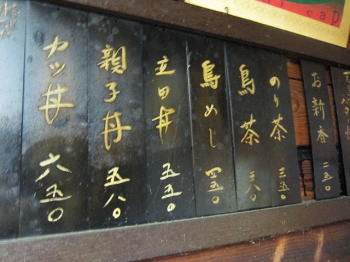 カツ丼 六五〇
親子丼 五八〇
立田丼 五五〇
鳥めし 四五〇
鳥茶 三八〇
のり茶 三五〇
お新香 二五〇